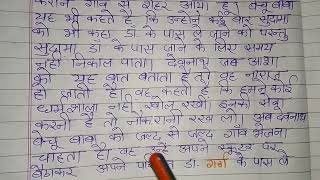 गाँव से शहर आया। हूँ। बच्चू बाबा
यह भी कहते हैं कि उन्होंने कई बार सुदामा
को भी कहा डॉ के पास ले जाने को परन्तु
सुदामा डॉ के पास जाने के लिए समय
नहीं निकाल पाता। देवनाथ जब आभा
को यह बात बताता है तो वह नाराज
हो जाती है। वह कहती है कि हमने कोई
धर्मशाला नहीं खोल रखी। इनकी सेवा
करनी है तो नौकरानी रख लो। अब देवनाथ
बच्चू बाबा को जल्द से जल्द गाँव भेजना
चाहता है। वह उन्हें अपने स्कूटर पर
बैठाकर अपने डा. गर्ग के पास ले